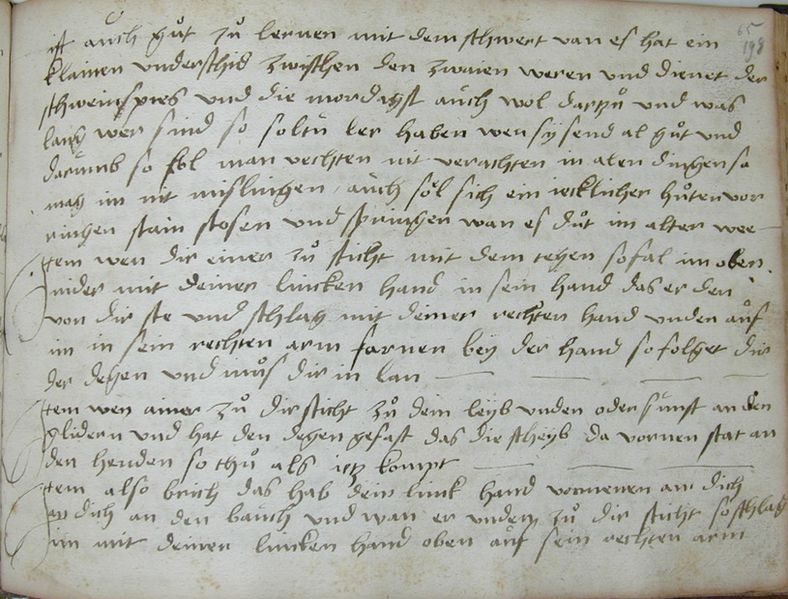 65
198
ist auch gůt zů lernen mit dem schwert wan es hat ein
klainen vnderschid zwischen den zwaien weren und dienet der
schweinspies und die mordagst auch wol dartzů und was
lang wer sind so soltu ler haben wen sy send al gůt und
darumb so sol man vechten nit verachten in alen dingen so
mag im nit mislingen auch sol sich ein iecklicher hůten vor
ringen stain stosen und springen wan es důt im alter wee
Item wen dir einer zů sticht mit dem degen so fal im oben
nider mit deiner lincken hand in sein hand das er den
von dir ste und schlag mit deiner rechten hand unden auf
im in sein rechten arm fornen bey der hand so folget dir
der degen und mus dir in lan
Item wen ainer zů dir sticht zů dem leyb vnden oder sunst an den
glidern und hat den degen gefast das die scheyb da vornen stat an
den henden so thů als ietz kompt
Item also brich das hab dein linck hand vornenen an dich
an dich an den bauch und wan er unden zů dir sticht so schlag
im mit deiner lincken hand oben auf sein rechten arm